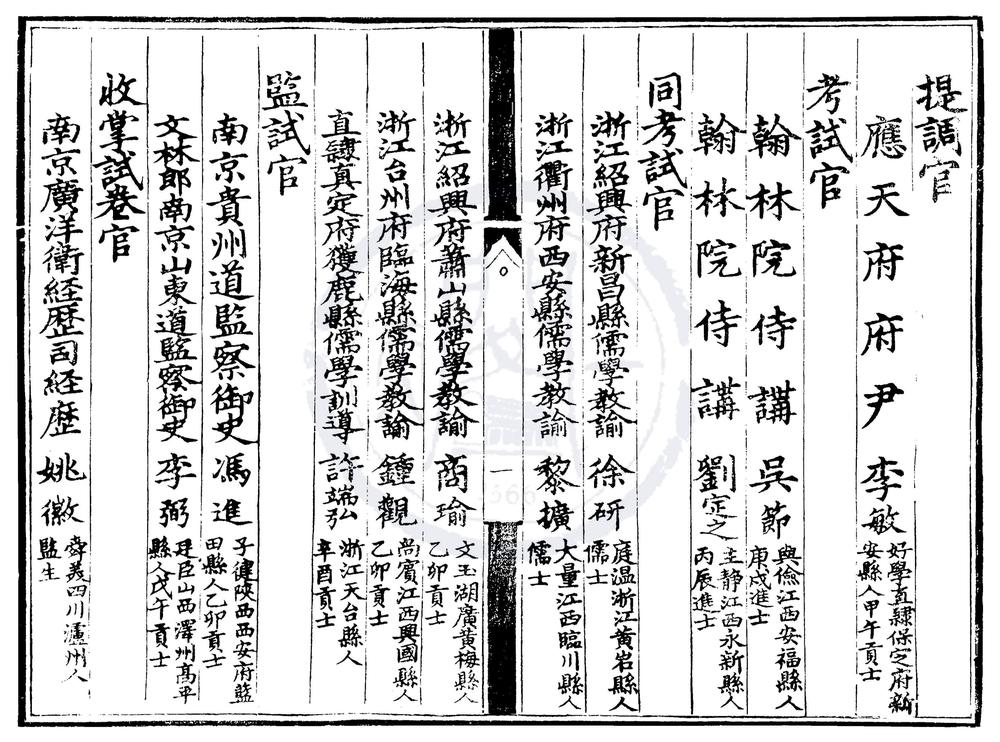 提調官
應天府府尹李敏 好學直隸保定府新
安縣人甲午貢士
考試官
翰林院侍講吳節 與儉江西安福縣人
庚戌進士
翰林院侍講劉定之 主静江西永新縣人
丙辰進士
同考試官
浙江紹興府新昌縣儒學教諭徐研 庭温浙江黄岩縣人
儒士
浙江衢州府西安縣儒學教諭黎擴 大量江西臨川縣人
儒士
一
浙江紹興府蕭山縣儒學教諭商瑜 文玉湖廣黄梅縣人
乙卯貢士
浙江台州府臨海縣儒學教諭鍾觀 尚賓江西興國縣人
乙卯貢士
直隸真定府獲鹿縣儒學訓導許端弘 浙江天台縣人
辛酉貢士
監試官
南京貴州道監察御史馮進 子健陝西西安府藍
田縣人乙卯貢士
文林郎南京山東道監察御史李弼 廷臣山西澤州髙平
縣人戊午貢士
收掌試卷官
南京廣洋衛経歷司経歷姚徽 舜美四川瀘州人
監生